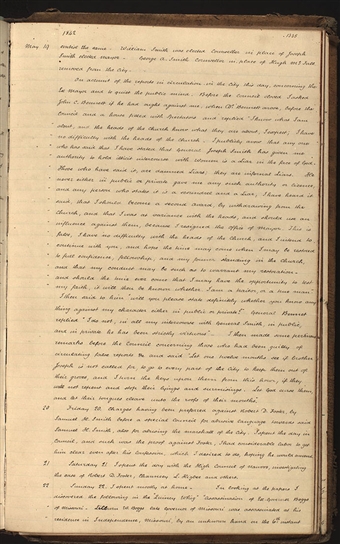 1842 1328
May 19 voted the same. William Smith was elected Councillor in place of Joseph
Smith elected mayor. George A. Smith Councillor in place of Hugh McFall
removed from the city.
On account of the reports in circulation in the city this day, concerning the
Ex Mayor and to quiet the public mind. Before the Council closed I asked
John C. Bennett if he had aught against me; when Dr. Bennett arose, before the
Council and a house filled with spectators and replied "I know what I am
about, and the heads of the Church know what they are about, I expect; I have
no difficulty with the heads of the church. I publicly avow that any one
who has said that I have stated that General Joseph Smith has given me
authority to hold illicit intercourse with women is a Liar in the face of God.
Those who have said it, are damned Liars; they are infernal Liars. He
never either in public or private gave me any such authority or license,
and any person who states it is a scoundrel and a Liar. I have heard it
said, that I should become a second Avard, by withdrawing from the
church, and that I was at variance with the heads, and should use an
influence against them, because I resigned the office of Mayor. This is
false, I have no difficulty with the heads of the Church, and I intend to
continue with you, and hope the time may come when I may be restored
to full confidence, fellowship, and my former standing in the Church,
and that my conduct may be such as to warrant my restoration
and should the time ever come that I may have the opportunity to test
my faith, it will then be known whether I am a traitor, or a true man.
I then said to him "will you please state definitely whether you know any
thing against my character either in public or private?" General Bennett
replied "I do not, in all my intercourse with General Smith, in public,
and in private he has been strictly virtuous". I then made some pertinent
remarks before the Council concerning those who had been guilty of
circulating false reports &c and said "Let one twelve months see if brother
Joseph is not called for, to go to every part of the city to keep them out of
their graves, and I turn the keys upon them from this hour, if they
will not repent and stop their lyings and surmisings. Let God curse them,
and let their tongues cleave unto the roofs of their mouths".
20 Friday 20, Charges having been preferred against Robert D. Foster, by
Samuel H. Smith before a special Council for abusive language towards said
Samuel H. Smith, also for abusing the marshall of the City. I spent the day in
Council, and such was the proof against Foster, I had considerable labor to get
him clear even after his confession, which I desired to do, hoping he would amend.
21 Saturday 21. I spent the day with the High Council of Nauvoo, investigating
the case of Robert D. Foster, Chauncey L. Higbee and others.
22 Sunday 22. I spent mostly at home. In looking at the papers I
discovered the following in the "Quincy Whig" "Assassination of Ex Governor Boggs
of Missouri. Lilburn W. Boggs late Governor of Missouri was assassinated at his
residence in Independence, Missouri, by an unknown hand on the 6th instant